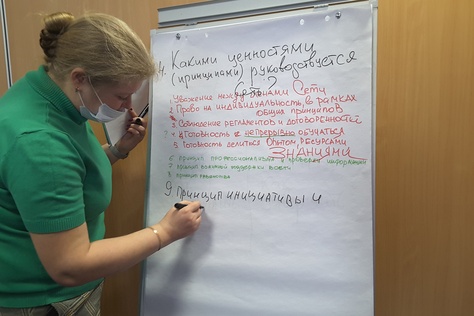 4. Какими ценностями
(принципами) руководствуется
Сеть?
1. Уважение между членами Сети
2. Право на индивидуальность, в рамках
общих принципов
3. Соблюдение регламентов и договоренностей
4. Готовность непрерывно обучаться
5. Готовность делиться опытом, ресурсами
ЗНАНИЯМИ
6 принцип профессионализма и информации
7 принцип взаимной поддержки
8 принцип
9. Принцип инициативы и